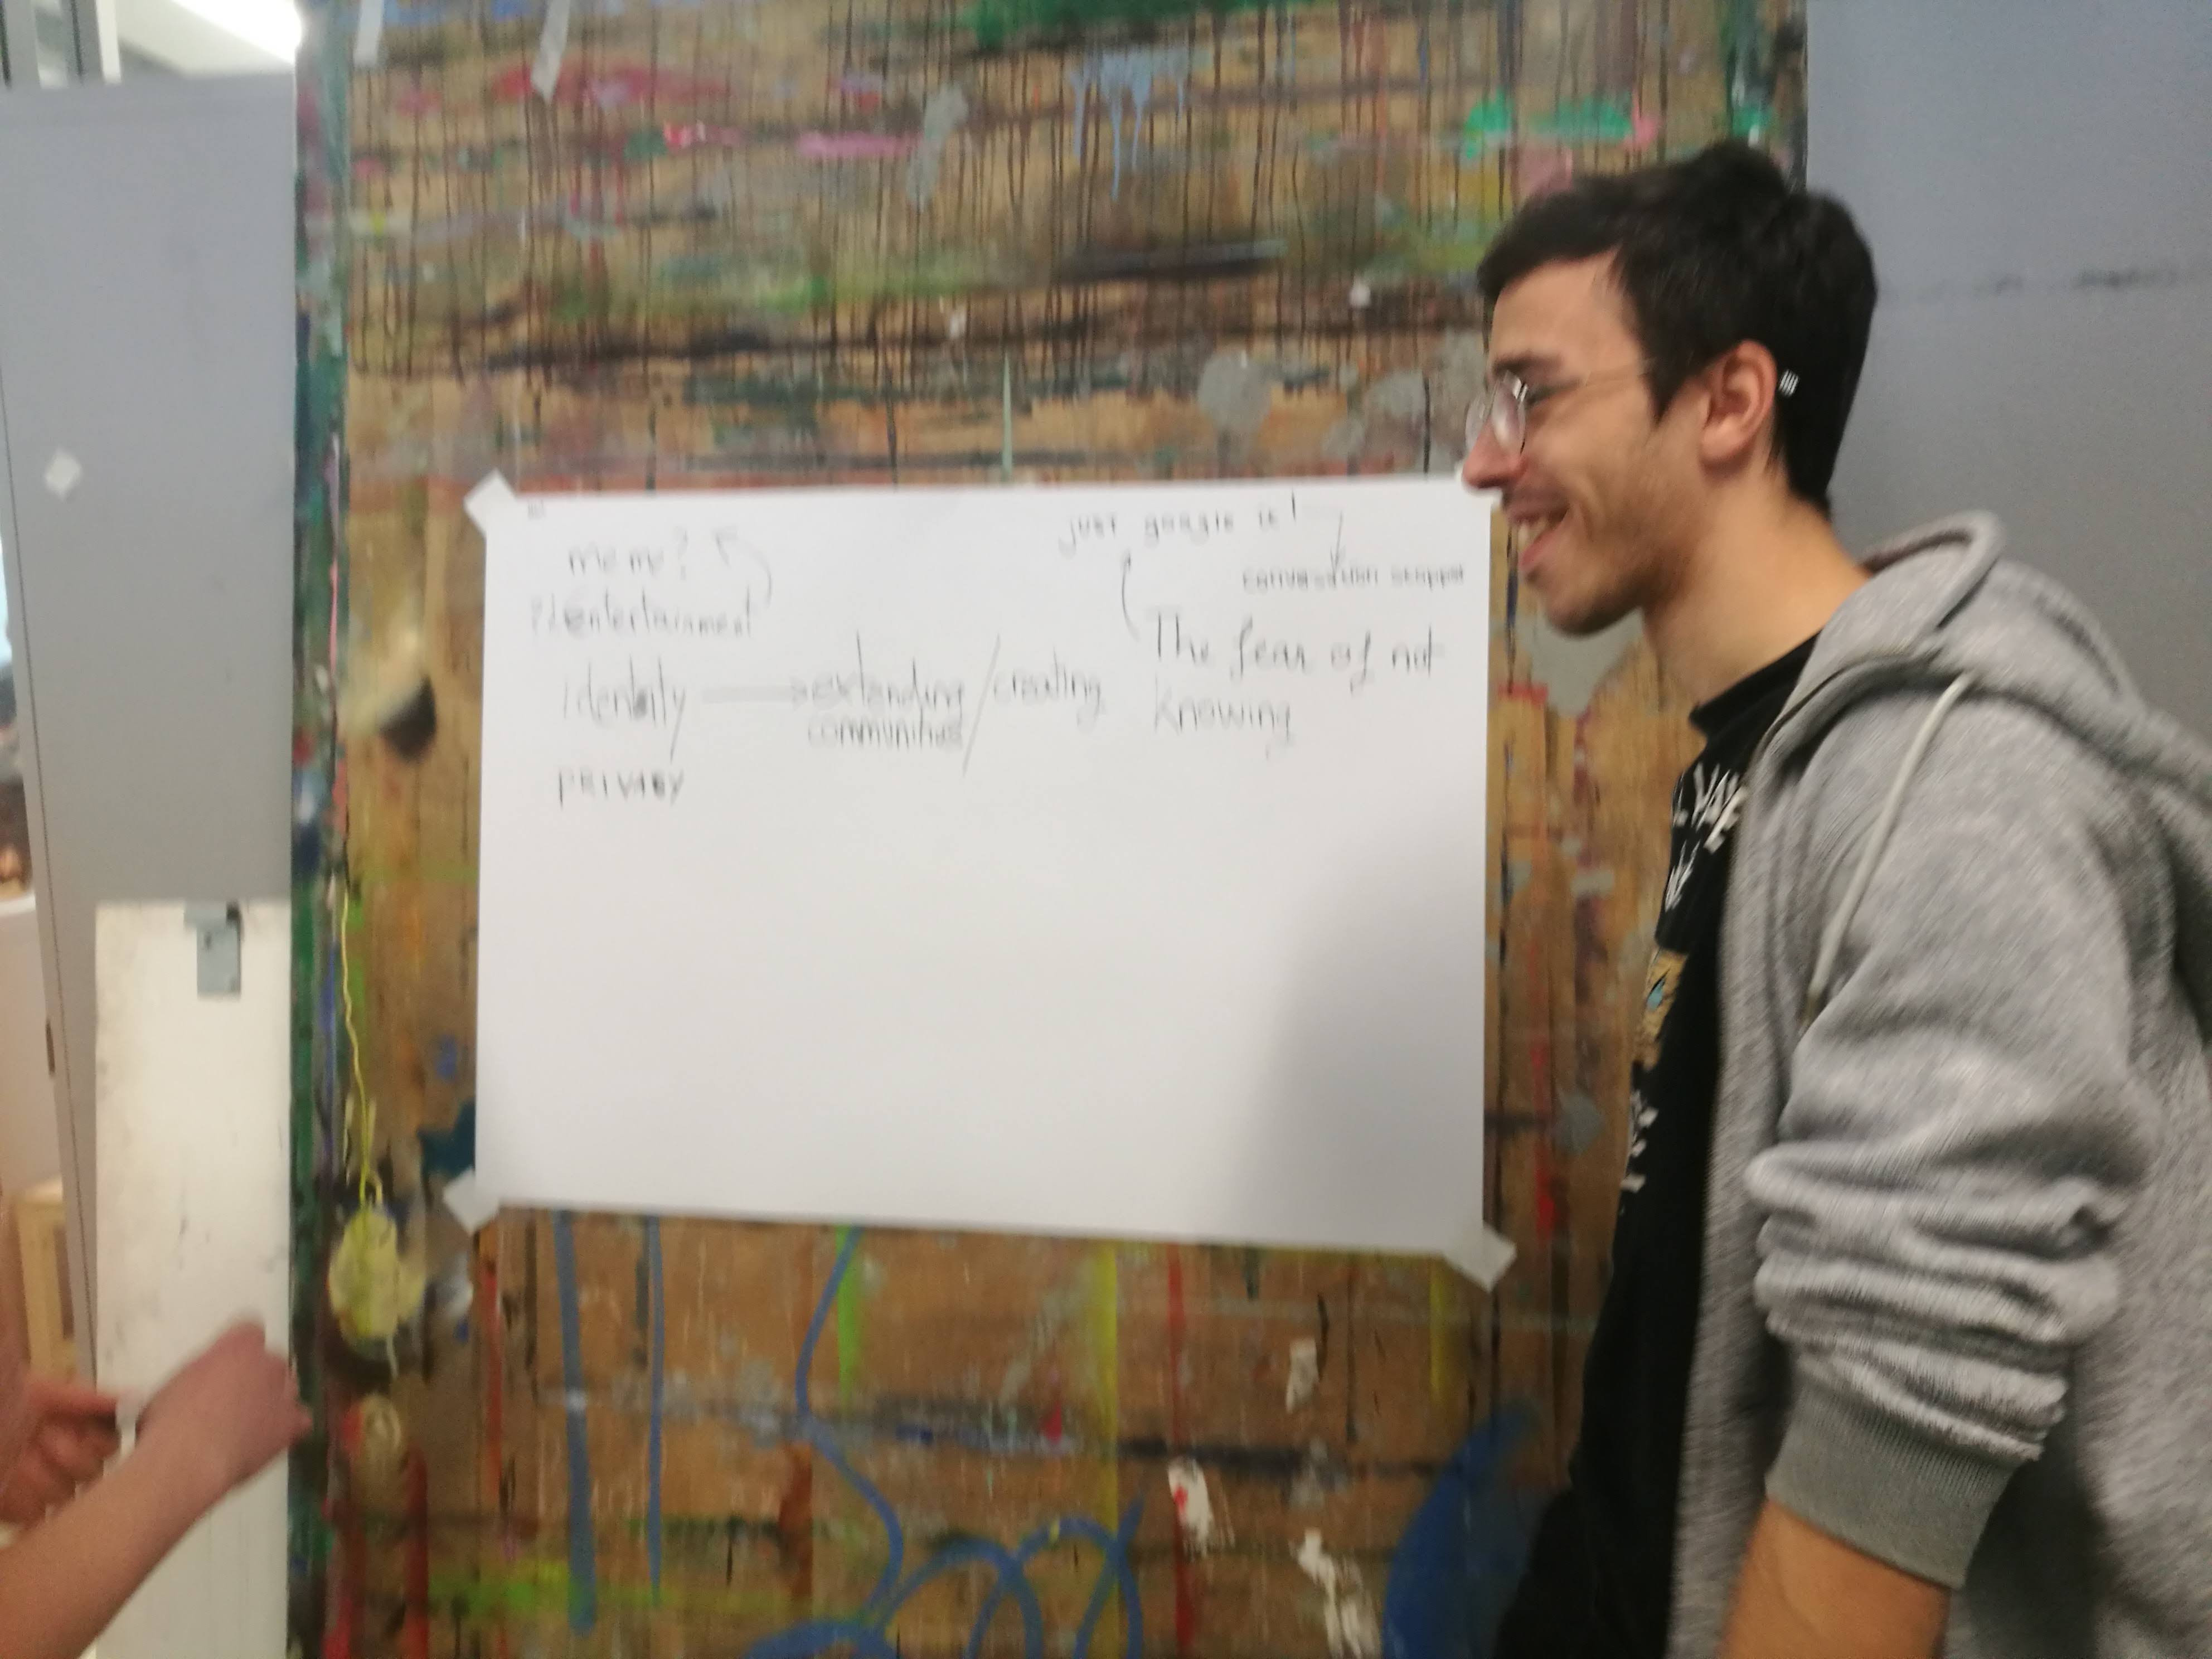 meme?
entertainment
identity → extending / creating
communities
PRIVACY
just google it!
conversation stopper
The fear of not
knowing